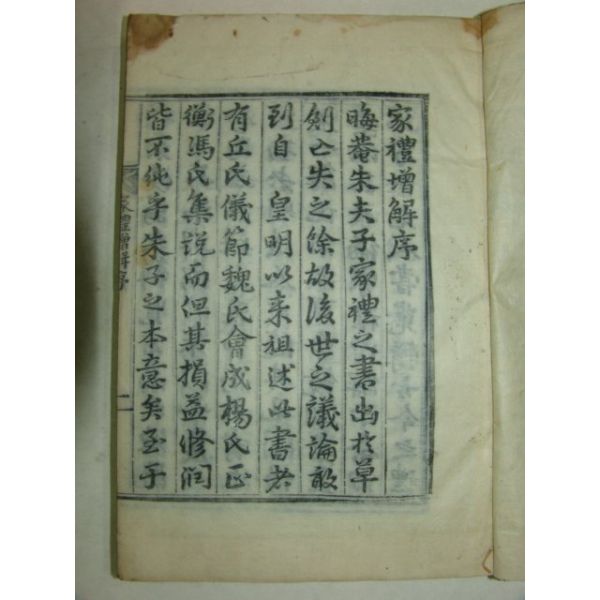 家禮增解序
晦菴朱夫子家禮之書出於草
剏亡失之餘故後世之議論敢
到自 皇明以来祖述此書者
有丘氏儀節魏氏會成楊氏正
衡馮氏集說而但其損益修潤
皆不純乎朱子之本意矣至于
家禮增解序